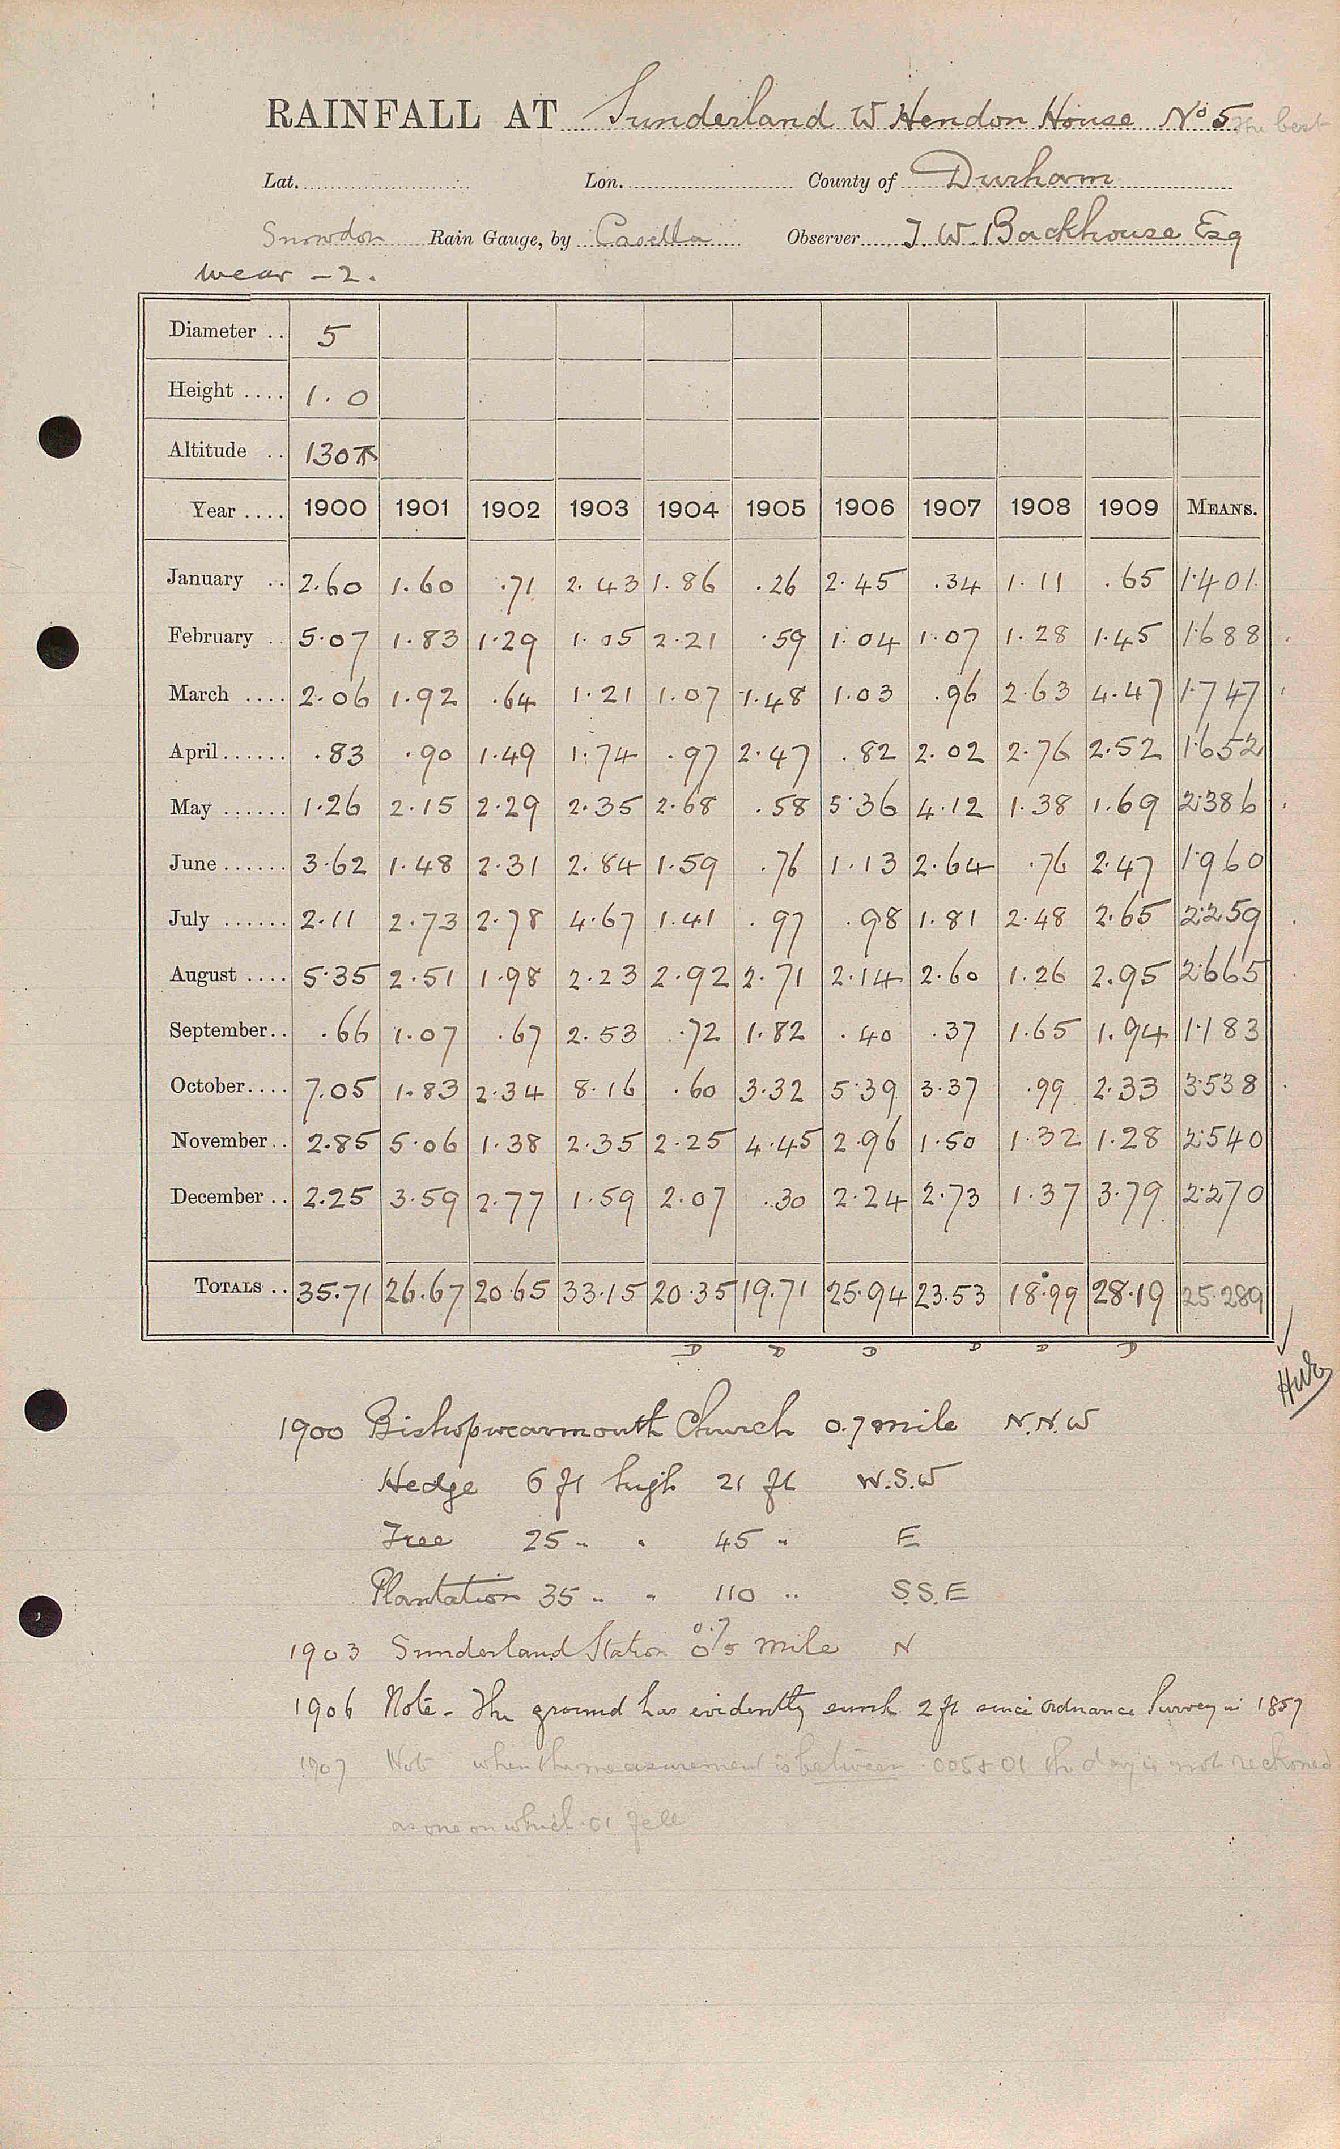 RAINFALL AT Sunderland W Hendon House No 5 The best
Lat. Lon. County of Durham
Snowdon Rain Gauge, by Casella Observer T W. Backhouse Esq
Wear - 2.
Diameter .. 5
Height .... 1. 0
Altitude .. 130
Year .... 1900 1901 1902 1903 1904 1905 1906 1907 1908 1909 MEANS.
January .. 2.60 1.60 .71 2.43 1.86 .26 2.45 .34 1.11 .65 1.401
February .. 5.07 1.83 1.29 1.05 2.21 .59 1.04 1.07 1.28 1.45 1.688
March .... 2.06 1.92 .64 1.21 1.07 1.48 1.03 .96 2.63 4.47 1.747
April ...... .83 .90 1.49 1.74 .97 2.47 .82 2.02 2.76 2.52 1.652
May ...... 1.26 2.15 2.29 2.35 2.68 .58 5.36 4.12 1.38 1.69 2.386
June ...... 3.62 1.48 2.31 2.84 1.59 .76 1.13 2.64 .76 2.47 1.960
July ...... 2.11 2.73 2.78 4.67 1.41 .97 .98 1.81 2.48 2.65 2.259
August .... 5.35 2.51 1.98 2.23 2.92 2.71 2.14 2.60 1.26 2.95 2.665
September .. .66 1.07 .67 2.53 .72 1.82 .40 .37 1.65 1.94 1.183
October .... 7.05 1.83 2.34 8.16 .60 3.32 5.39 3.37 .99 2.33 3.538
November .. 2.85 5.06 1.38 2.35 2.25 4.45 2.96 1.50 1.32 1.28 2.540
December .. 2.25 3.59 2.77 1.59 2.07 .30 2.24 2.73 1.37 3.79 2.270
TOTALS .. 35.71 26.67 20.65 33.15 20.35 19.71 25.94 23.53 18.99 28.19 25.289
D D D D D D
1900 Bishopwearmouth Church 0.7 mile N.N.W
Hedge 6 ft high 21 ft W.S.W
Tree 25 " " 45 " E
Plantation 35 " " 110 " S.S.E
1903 Sunderland Station 0.7 mile N
1906 Note - The ground has evidently sunk 2 ft since Ordnance Survey in 1857
1907 Note when the measurement is between .005 & .01 the day is not reckoned
as one on which .01 fell